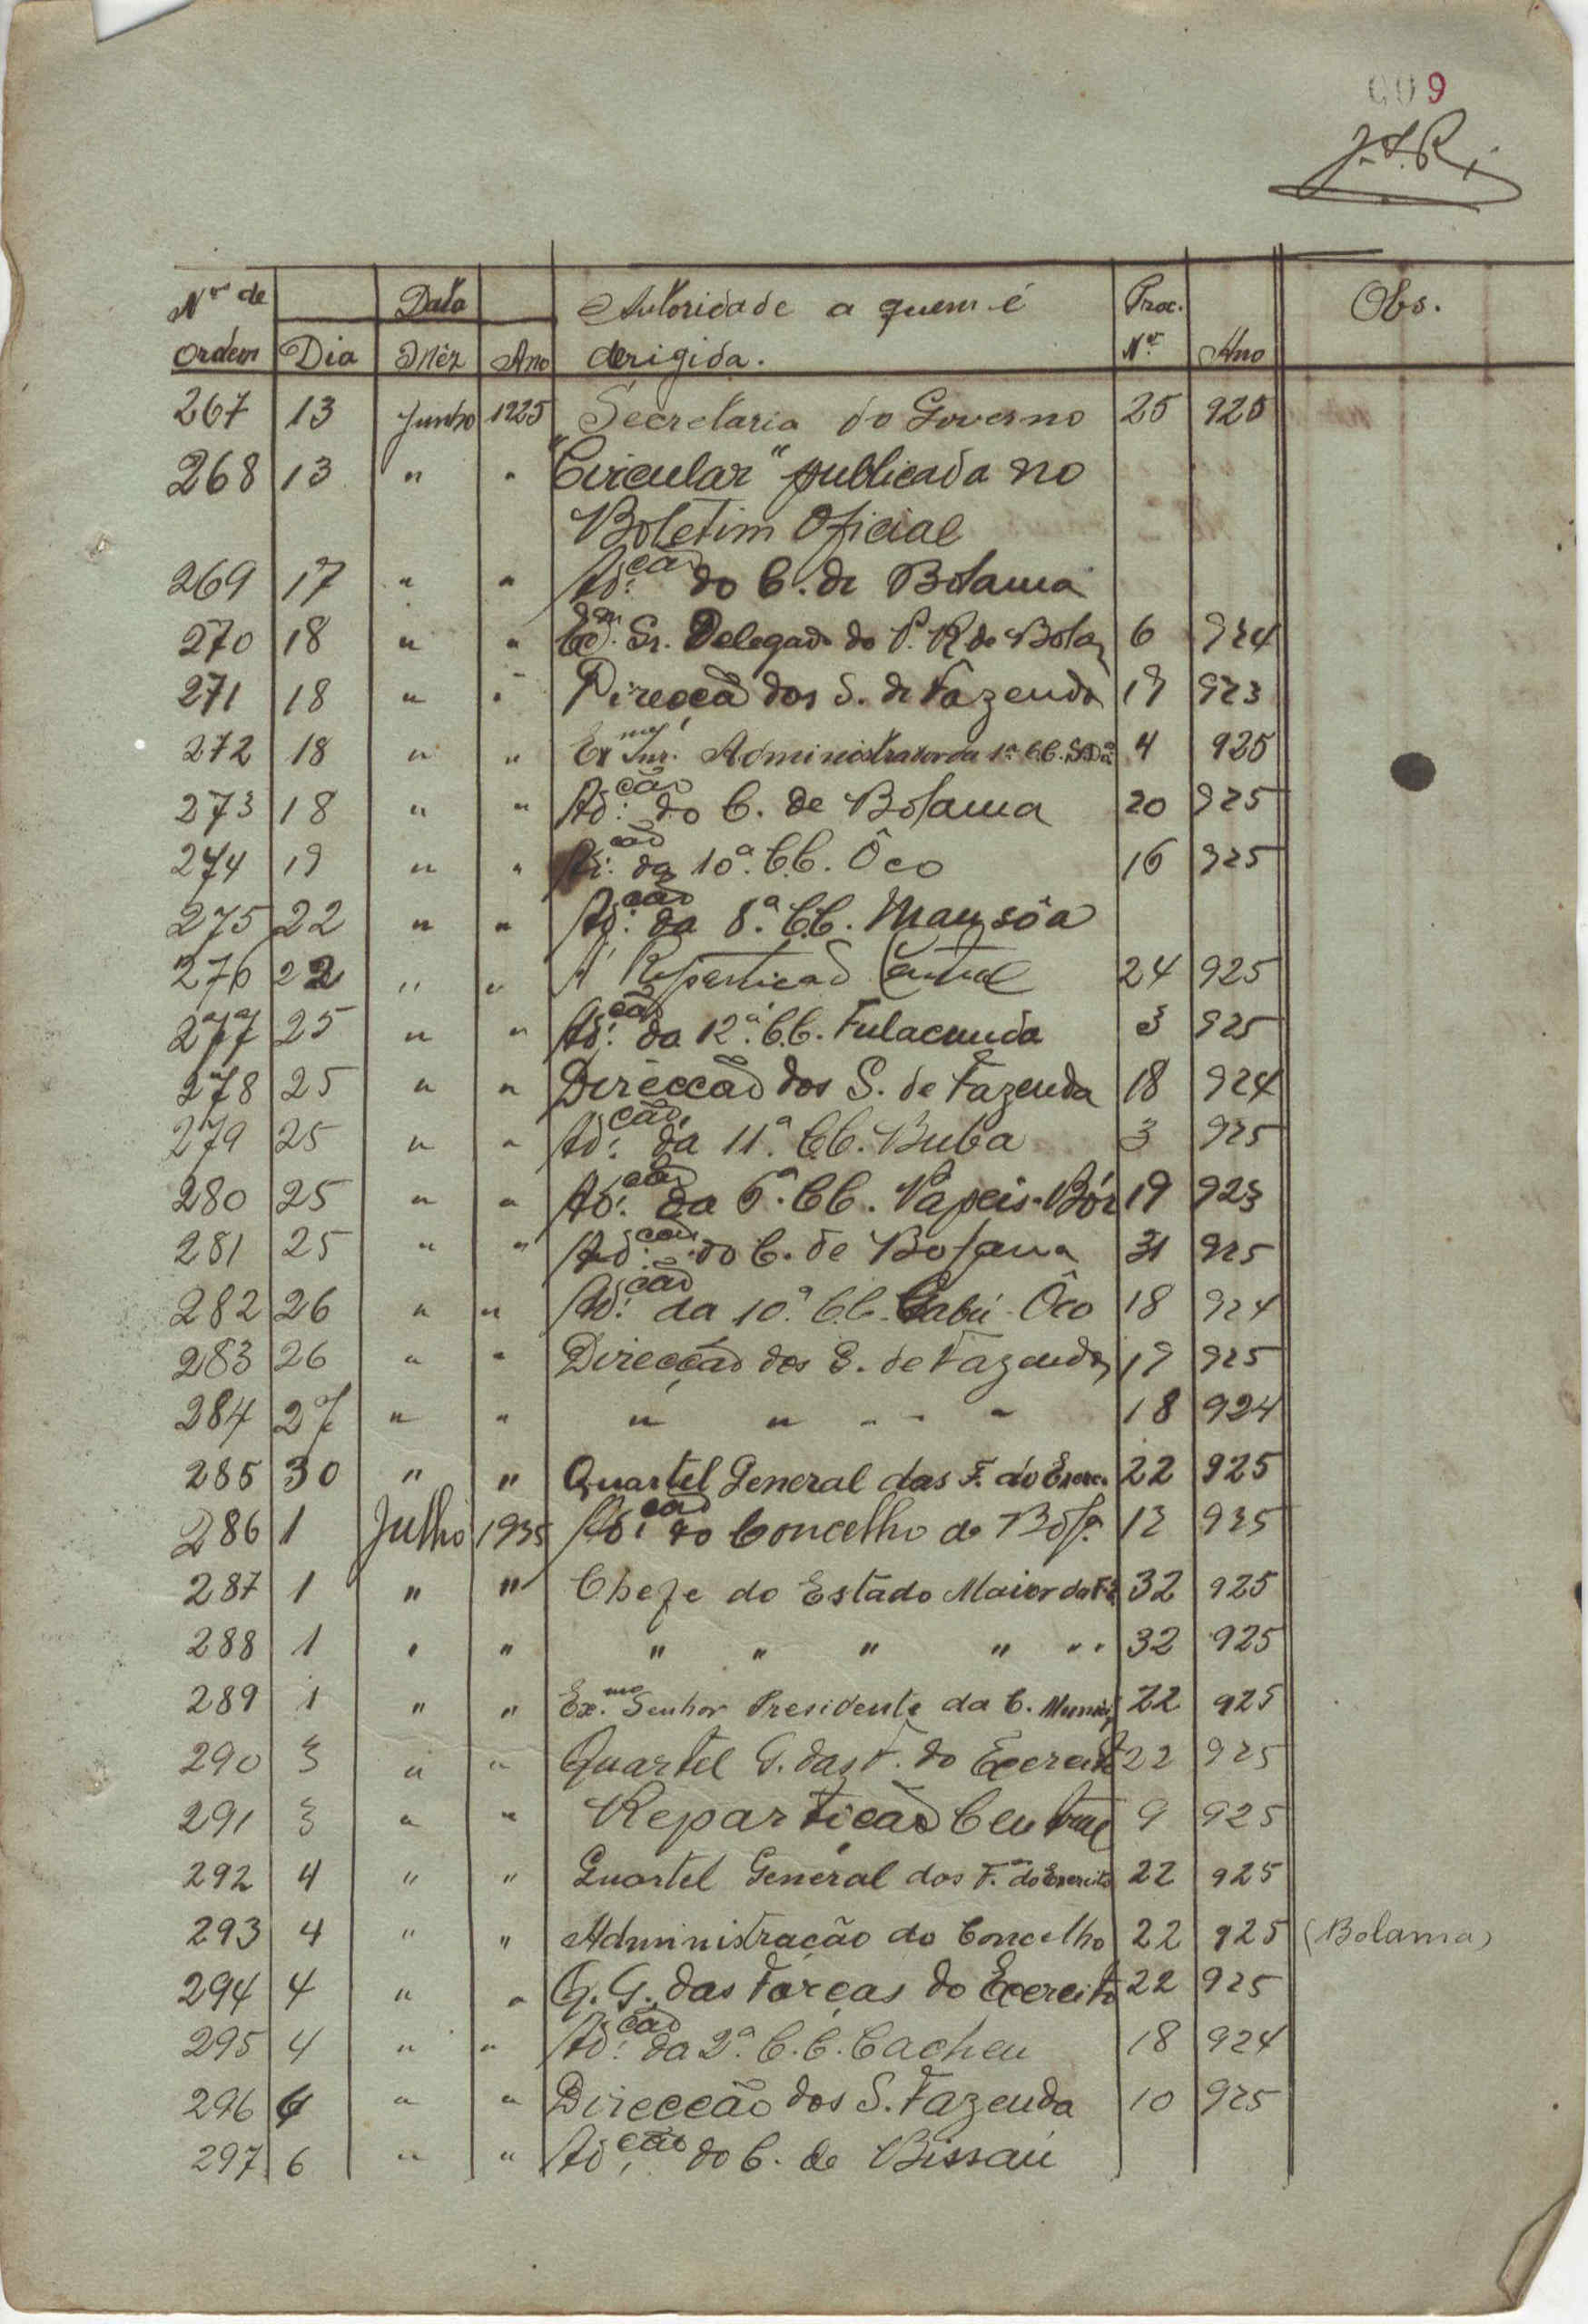 009
J.S.R.
Nr de Data Autoridade a quem é Proc. Obs.
Ordem Dia Mêz Ano derigida. Nr. Ano
267 13 Junho 1925 Secretaria do Governo 25 925
268 13 " " "Circular" publicada no
Boletim Oficial
269 17 " " Ad.ção do C. de Bolama
270 18 " " Sr. Delegado do P. R. de Bola 6 924
271 18 " " Direcçã dos S. de Fazenda 19 923
272 18 " " Ex.mo Snr. Administrador da 1ª C.C. 4 925
273 18 " " Ad.ção do C. de Bolama 20 925
274 19 " " Ad.ção da 10ª. C.C. Ôco 16 925
275 22 " " Ad.ção da 8ª. C.C. Mansôa
276 22 " " A' Repartição Central 24 925
277 25 " " Ad.ção da 12ª. C.C. Fulacunda 3 925
278 25 " " Direcção dos S. de Fazenda 18 924
279 25 " " Ad.ção da 11ª. C.C. Buba 3 925
280 25 " " Ad.ção da 6ª. C.C. Papeis-Bór 19 923
281 25 " " Ad.ção do C. de Bolama 31 925
282 26 " " Ad.ção da 10ª. C.C. Gabú-Ôco 18 924
283 26 " " Direcção dos S. de Fazenda 19 925
284 27 " " " " " " " 18 924
285 30 " " Quartel General das F. do Exerc. 22 925
286 1 Julho 1935 Ad.ção do Concelho de Bolª. 12 925
287 1 " " Chefe do Estado Maior da F. 32 925
288 1 " " " " " " " " 32 925
289 1 " " Ex.mo Senhor Presidente da C. Municip. 22 925
290 3 " " Quartel G. das F. do Exercito 22 925
291 3 " " Repartição Central 9 925
292 4 " " Quartel General das F. do Exercito 22 925
293 4 " " Administração do Concelho 22 925 (Bolama)
294 4 " " Q. G. das Forças do Exercito 22 925
295 4 " " Ad.ção da 2ª. C.C. Cacheu 18 924
296 6 " " Direcção dos S. Fazenda 10 925
297 6 " " Ad.ção do C. de Bissaú